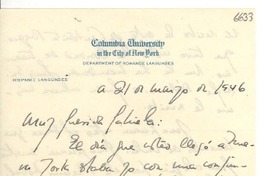 6633
Columbia University
in the City of New York
DEPARTMENT OF ROMANCE LANGUAGES
HISPANIC LANGUAGES
a 21 de marzo de 1946
Muy querida Gabriela:
El día que usted llegó a Nueva
York estaba yo con una